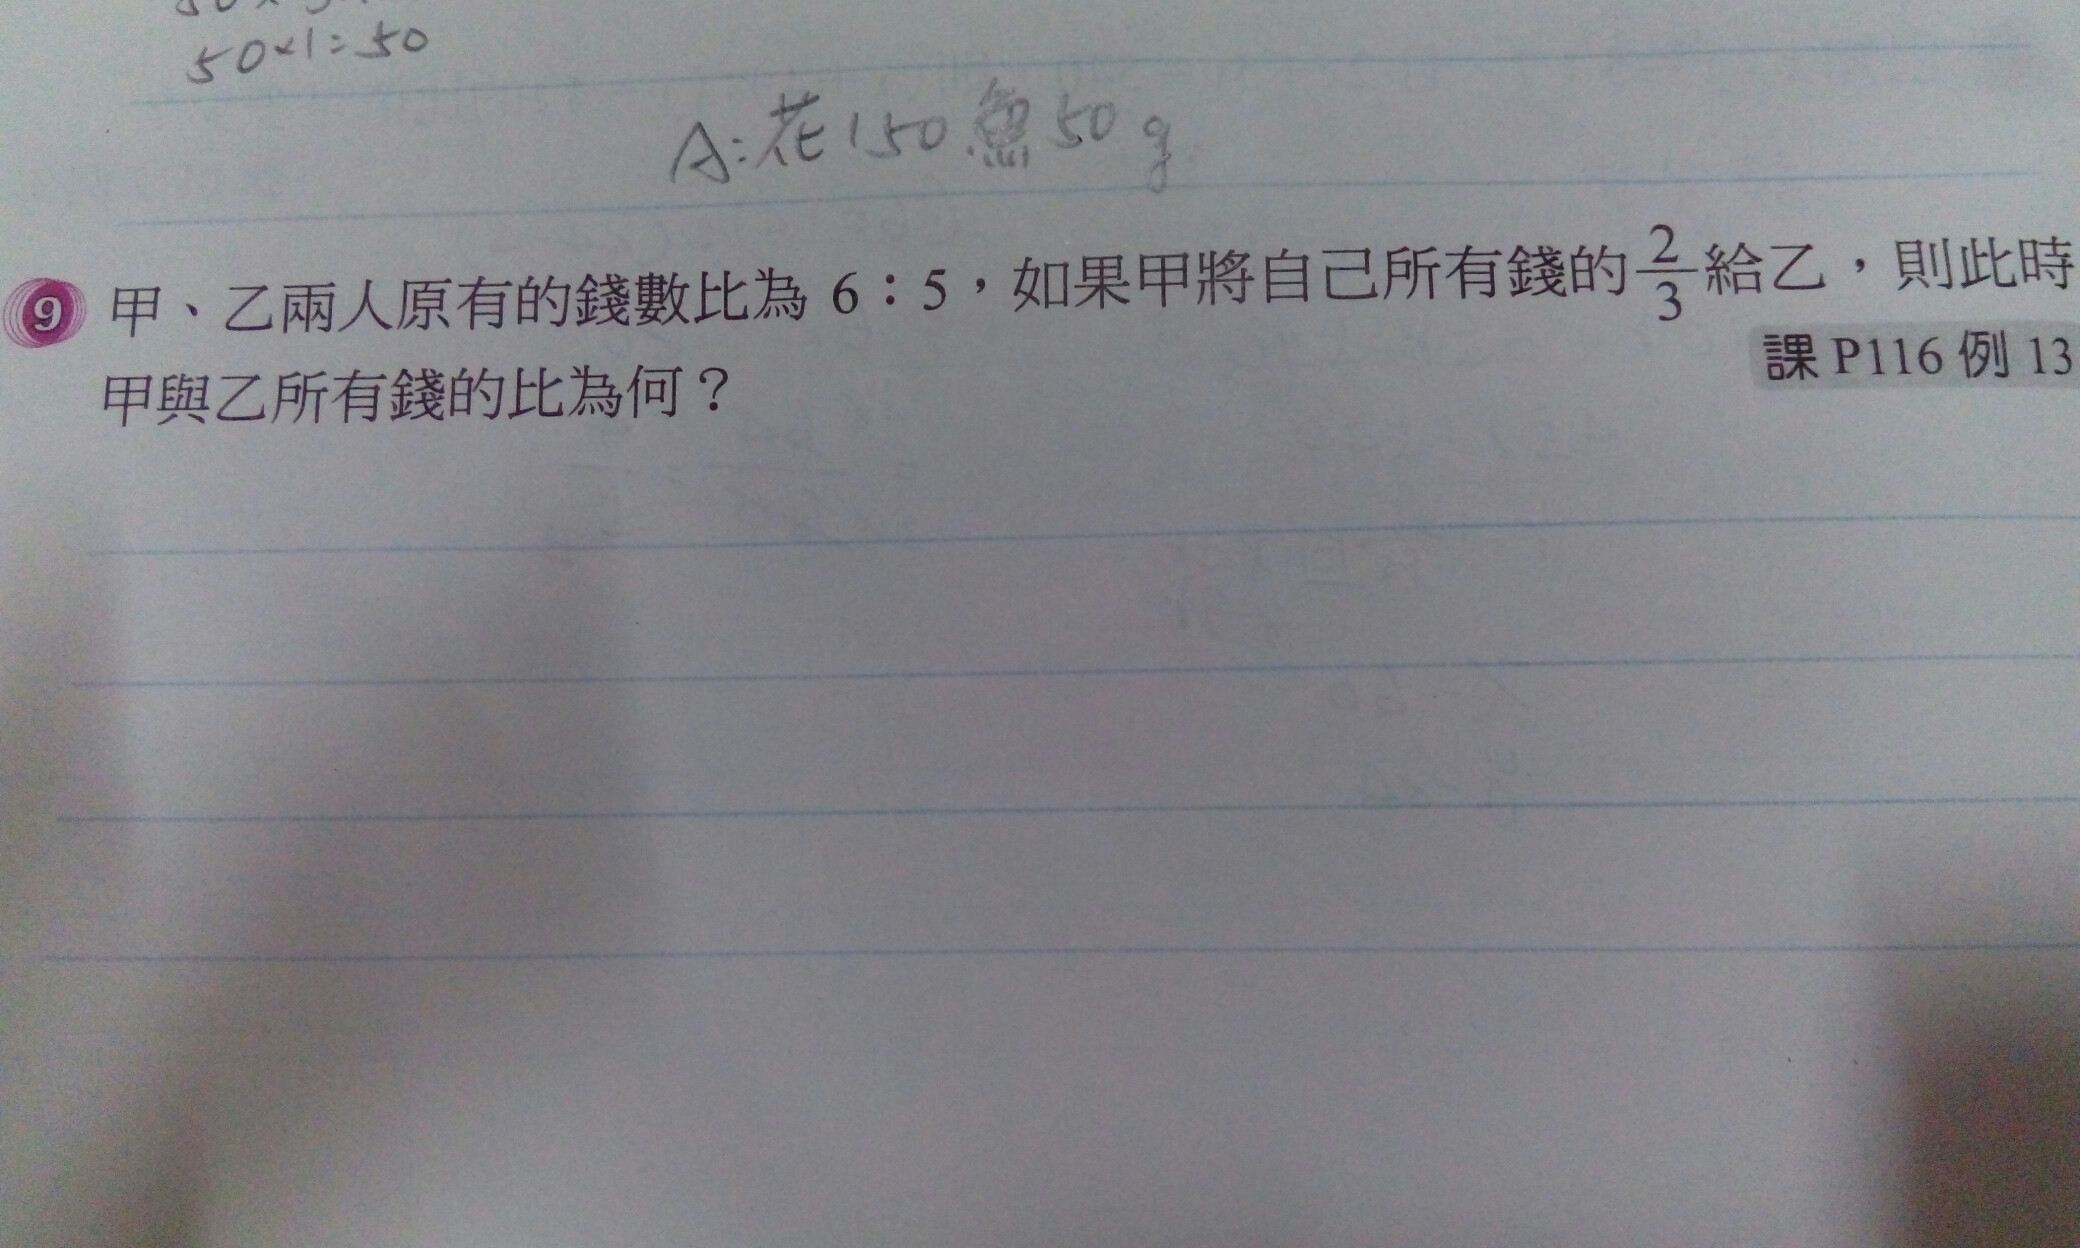 50×1=50
A:花150魚50g
9 甲、乙兩人原有的錢數比為 6:5,如果甲將自己所有錢的2/3給乙,則此時
甲與乙所有錢的比為何?
課 P116 例 13